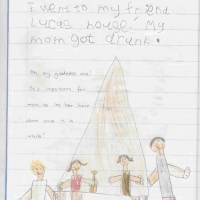 i went to my friend
Lucas house. My
mom got drunk.
Oh, my goodness me!
It's important for
mom to let her hair
down once in a
while!